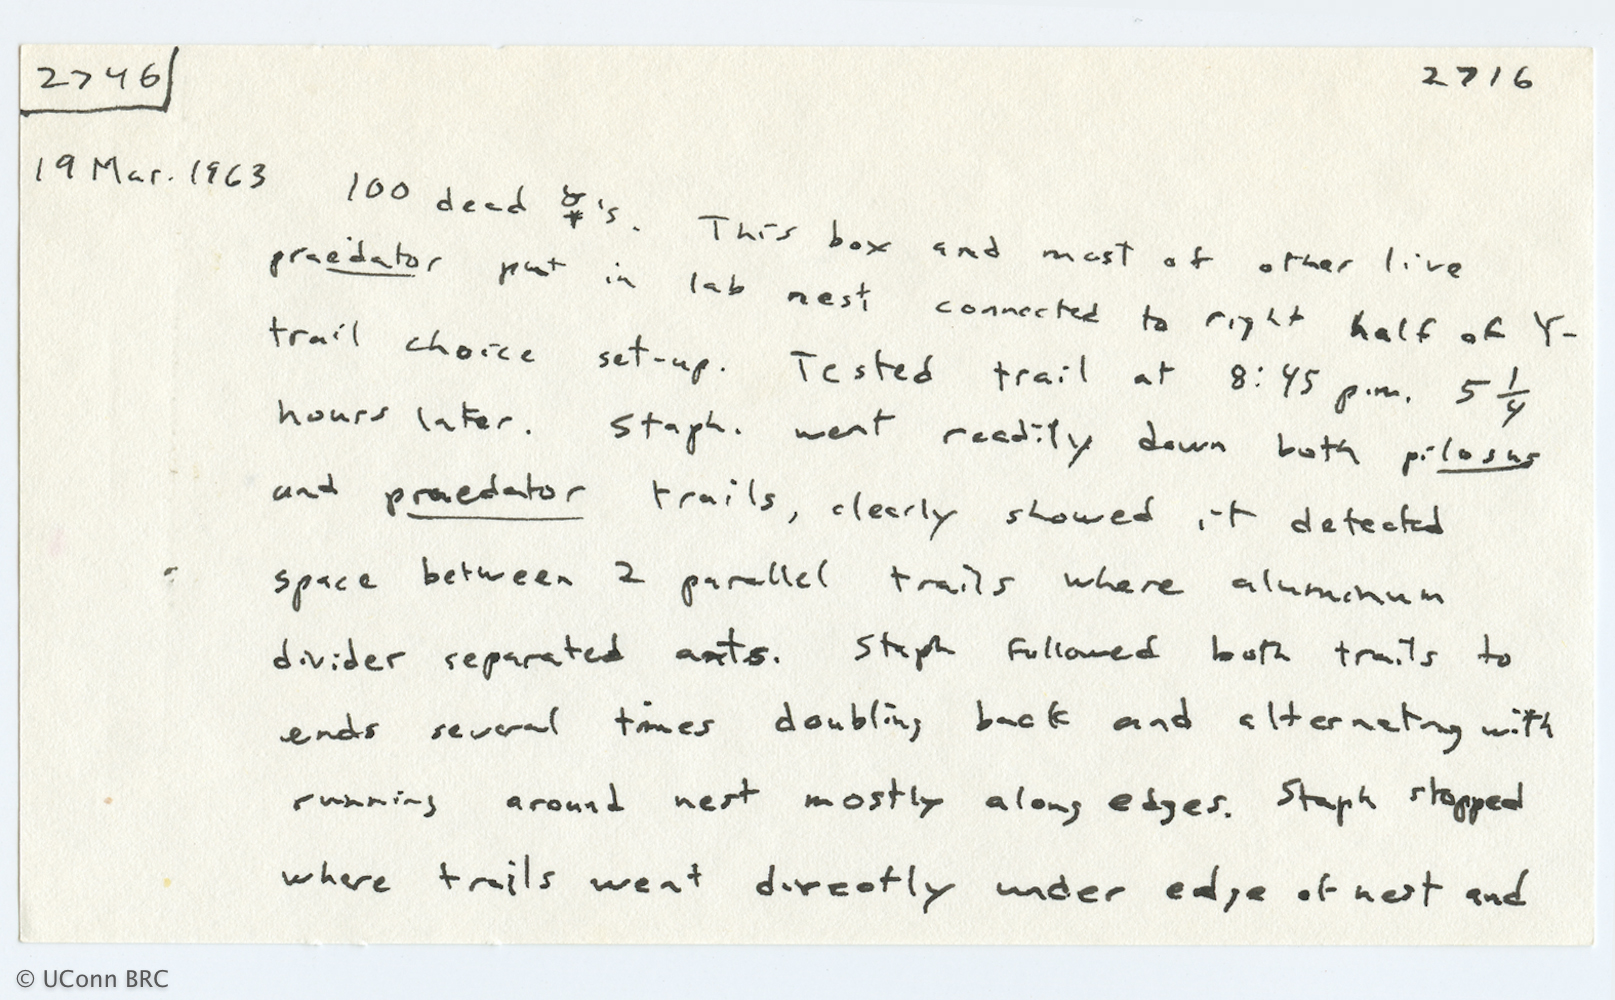 2746
2716
19 Mar. 1963 100 dead ☿'s. This box and most of other live
praedator put in lab nest connected to right half of Y-
trail choice set-up. Tested trail at 8:45 p.m. 5 1/4
hours later. Staph. went readily down both pilosus
and praedator trails, clearly showed it detected
space between 2 parallel trails where aluminum
divider separated ants. Staph followed both trails to
ends several times doubling back and alternating with
running around nest mostly along edges. Staph stopped
where trails went directly under edge of nest and
© UConn BRC